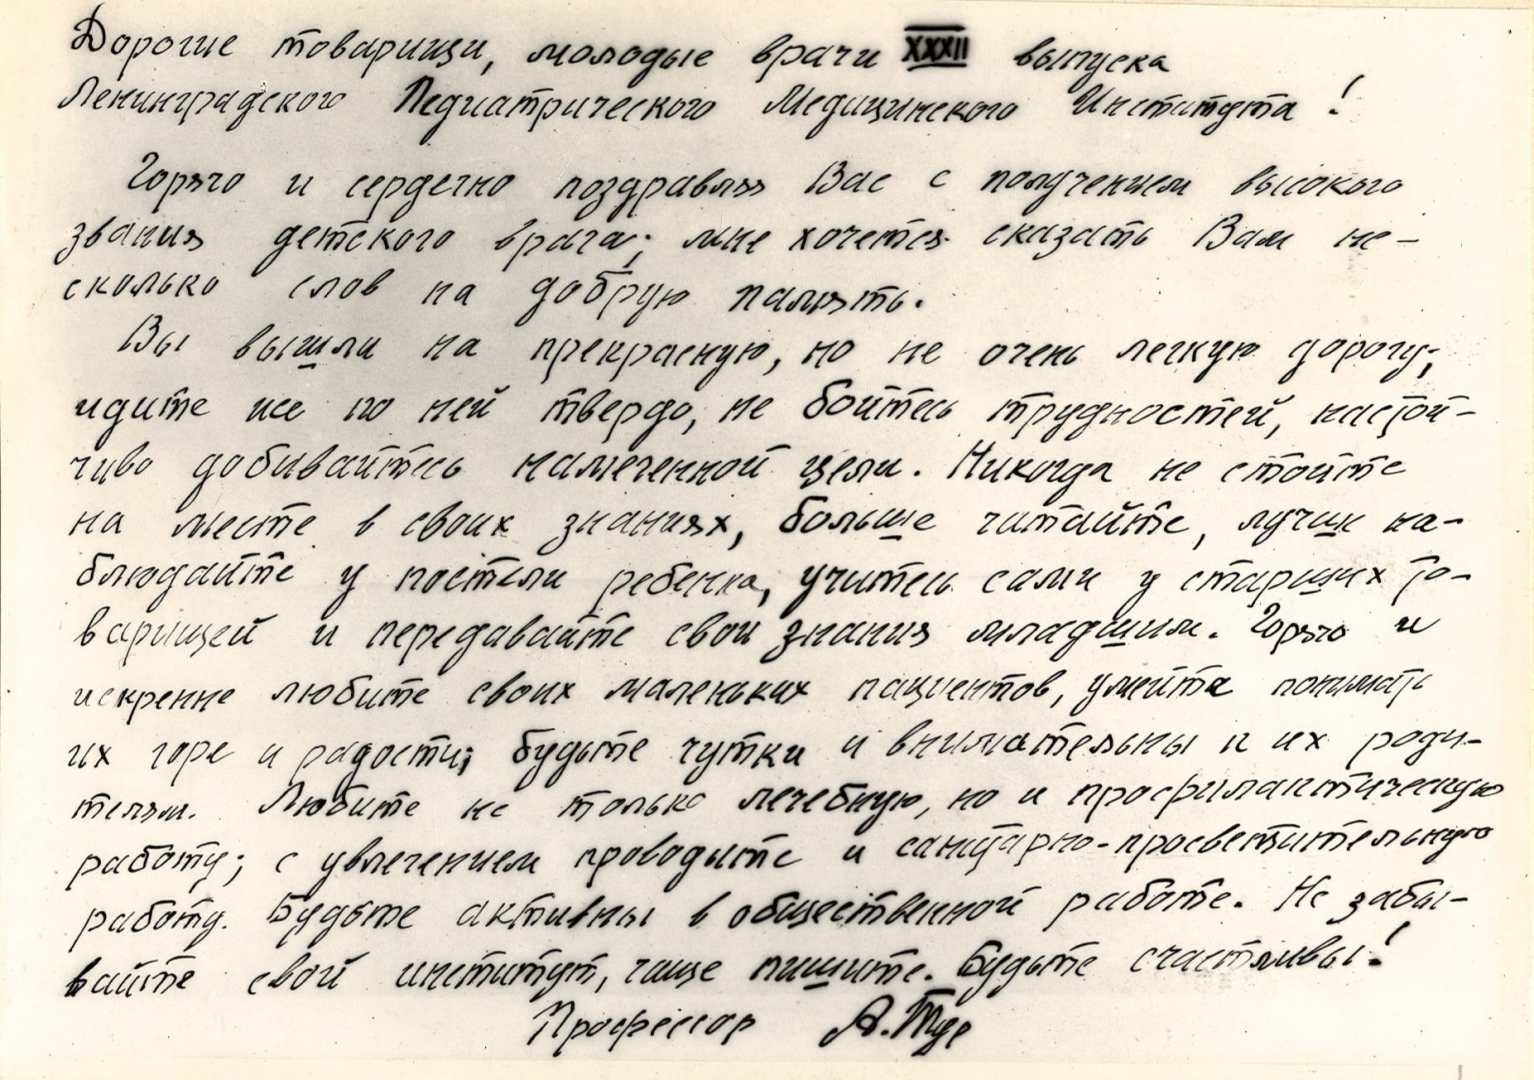 Дорогие товарищи, молодые врачи XXXII выпуска
Ленинградского Педиатрического Медицинского Института!
Горячо и сердечно поздравляю Вас с получением высокого
звания детского врача; мне хочется сказать Вам не-
сколько слов на добрую память.
Вы вышли на прекрасную, но не очень легкую дорогу;
идите же по ней твердо, не бойтесь трудностей, настой-
чиво добивайтесь намеченной цели. Никогда не стойте
на месте в своих знаниях, больше читайте, лучше на-
блюдайте у постели ребенка, учитесь сами у старших то-
варищей и передавайте свои знания младшим. Горячо и
искренне любите своих маленьких пациентов, умейте понимать
их горе и радости; будьте чутки и внимательны к их роди-
телям. Любите не только лечебную, но и профилактическую
работу; с увлечением проводите и санитарно-просветительную
работу. Будьте активны в общественной работе. Не забы-
вайте свой институт, чаще пишите. Будьте счастливы!
Профессор А. Тур